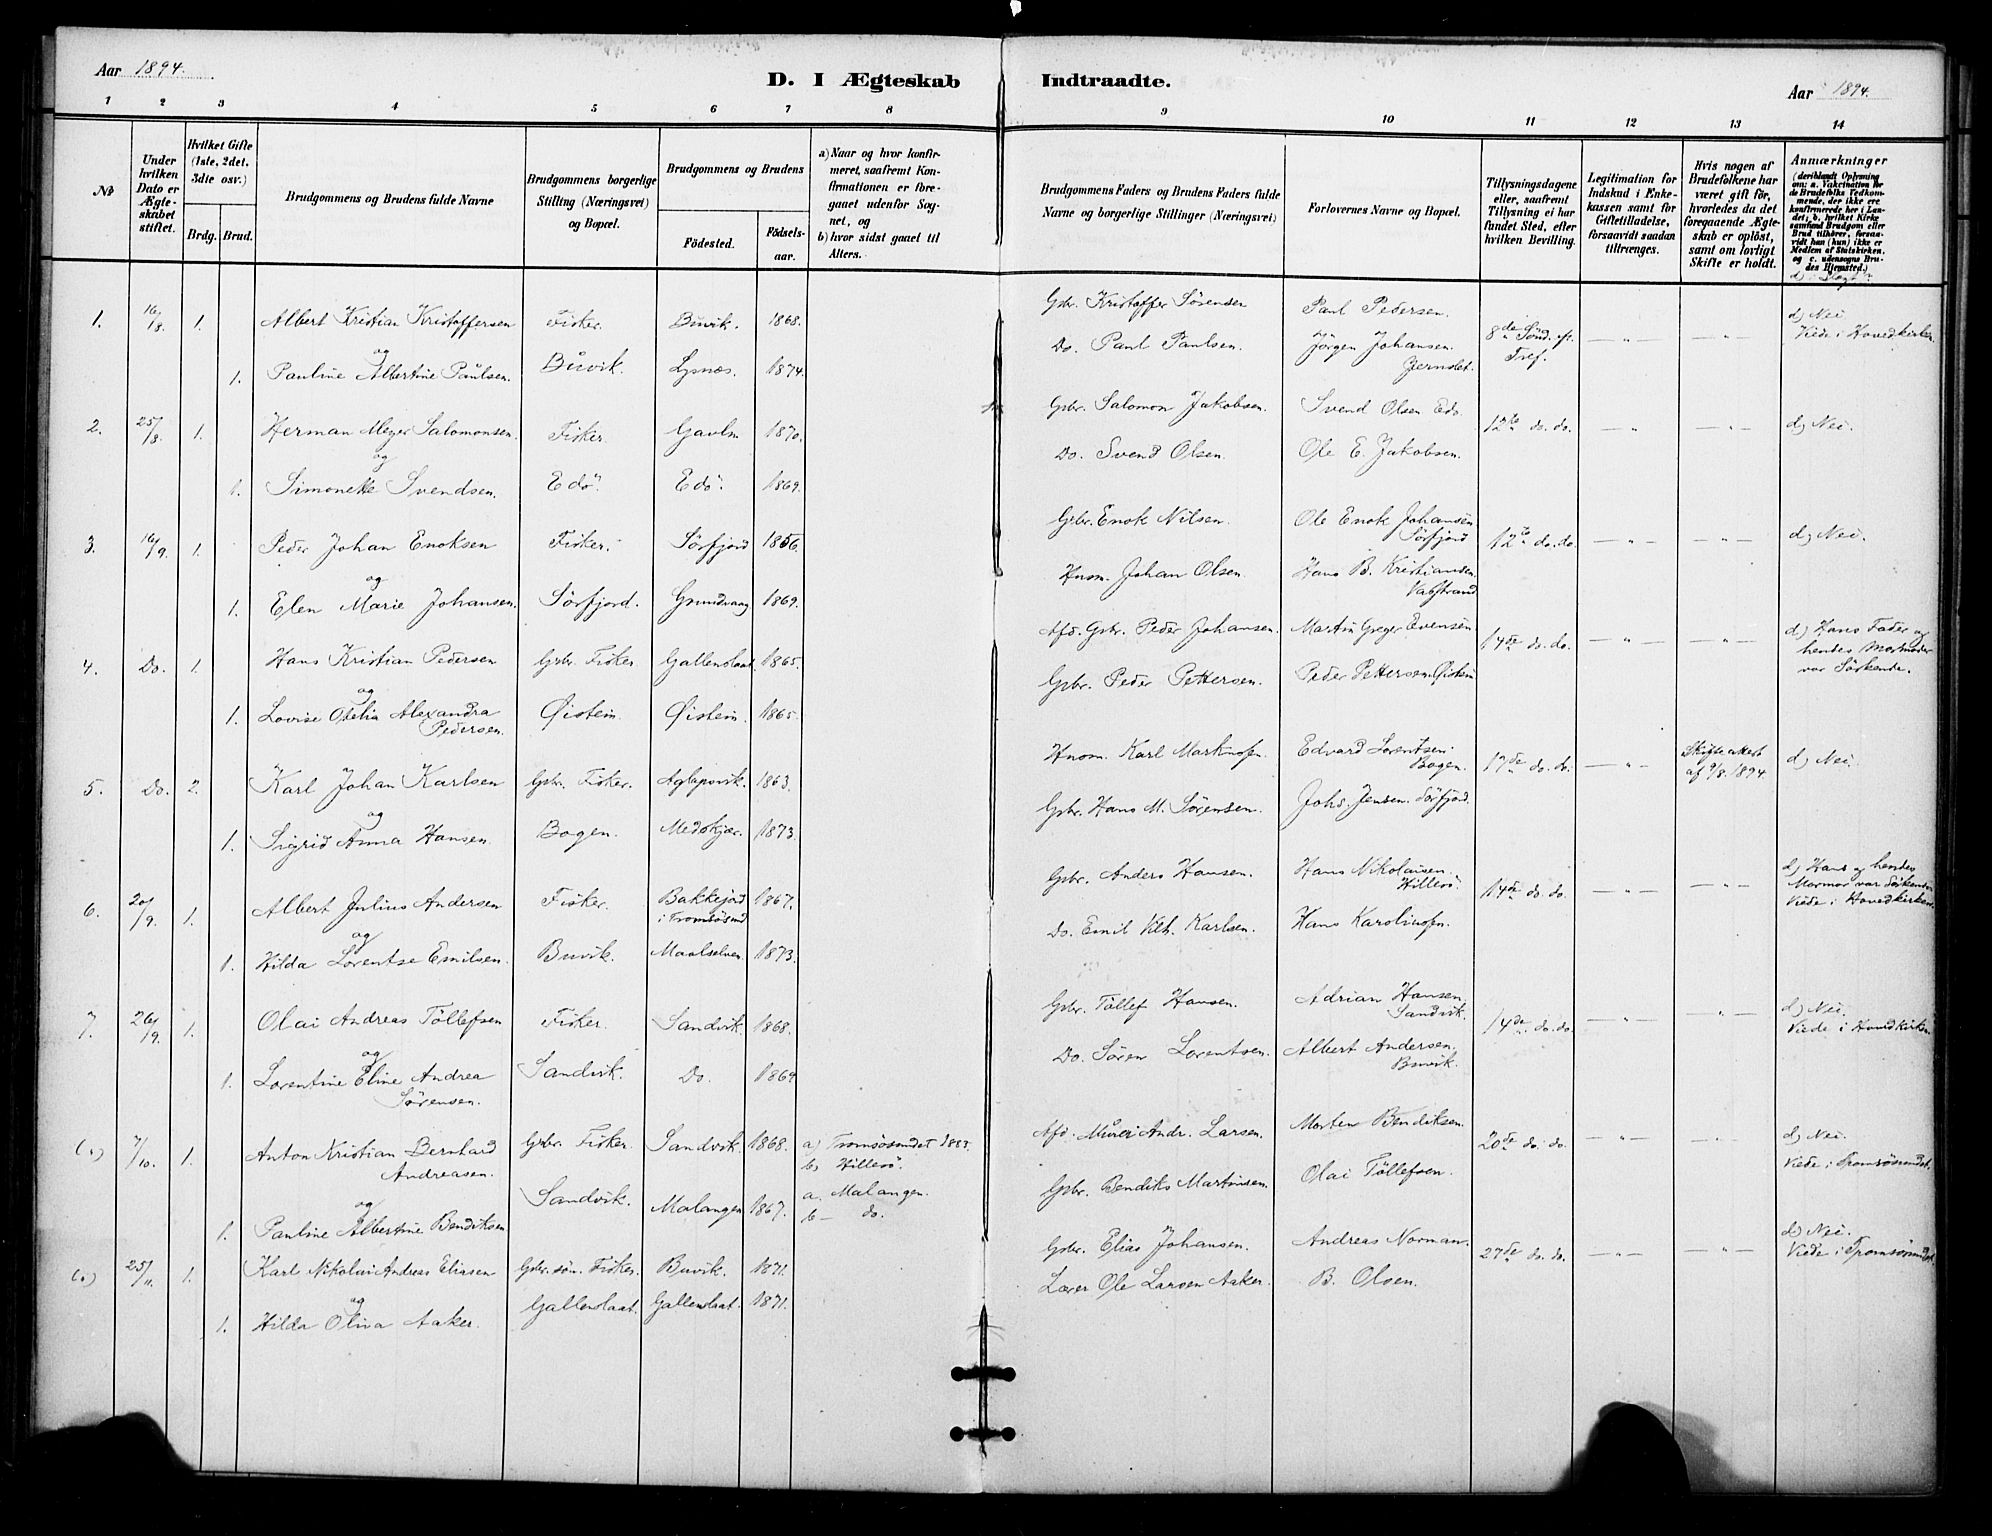 Aar 1894.
D. I Ægteskab Indtraadte.
Aar 1894.
1 2 3 4 5 6 7 8 9 10 11 12 13 14
№
Under hvilken Dato er Ægteskabet stiftet.
Hvilket Gifte (1ste, 2det, 3die osv.)
Brdg. Brud.
Brudgommens og Brudens fulde Navne
Brudgommens borgerlige Stilling (Næringsvei) og Bopæl.
Brudgommens og Brudens
Födested.
Födselsaar.
a) Naar og hvor konfirmeret, saafremt Konfirmationen er foregaaet udenfor Sognet, og
b) hvor sidst gaaet til Alters.
Brudgommens Faders og Brudens Faders fulde Navne og borgerlige Stillinger (Næringsvei)
Forlovernes Navne og Bopæl.
Tillysningsdagene eller, saafremt Tillysning ei har fundet Sted, efter hvilken Bevilling.
Legitimation for Indskud i Enkekassen samt for Giftetilladelse, forsaavidt saadan tiltrænges.
Hvis nogen af Brudefolkene har været gift för, hvorledes da det foregaaende Ægteskab er oplöst, samt om lovligt Skifte er holdt.
Anmærkninger (deriblandt Oplysning om: a. Vakcination for de Brudefolks Vedkommende, der ikke ere konfirmerede her i Landet, b. hvilket Kirkesamfund Brudgom eller Brud tilhörer, forsaavidt han (hun) ikke er Medlem af Statskirken, og c. udensogns Brudes Hjemsted.)
1. 16/8. 1. Albert Kristian Kristoffersen Fisker. Buvik. 1868. Gbr. Kristoffer Sørensen Paul Pedersen. 8de Sønd. e. Tref. — " — — " — d) Nei. Viede i Hovedkirken
og
1. Pauline Albertine Paulsen. Buvik. Lysnes. 1874. Do. Paul Paulsen. Jørgen Johansen.
2. 25/8. 1. Herman Meyer Salomonsen. Fisker. 1870. Gbr. Salomon Jakobsen. Svend Olsen Edø 12te do. do. — " — — " — d) Nei.
og
1. Simonette Svendsen. Edö. Edö. 1869. Do. Svend Olsen. Ole E. Jakobsen.
3. 16/9. 1. Peder Johan Enoksen Fisker. Sörfjord 1856. Gbr. Enok Nilsen. Ole Enok Johansen Sörfjord 12te do. do. — " — — " — d) Nei.
og
1. Elen Marie Johansen. Sörfjord. Grundvaag 1869. Hnsm. Johan Olsen. Hans B. Kristiansen.
4. Do. 1. Hans Kristian Pedersen Gbr. Fisker Gallenslaat. 1865. Afd. Gbr. Peder Johansen. Martin Greger Evensen 14de do. do. — " — — " — d) Hans Fader og hendes Mormoder var Söskende.
og
1. Lovise Otelia Alexandra Pedersen. Øistein. Øistein. 1865. Gbr. Peder Pettersen. Peder Pettersen Øistein
5. Do. 2. Karl Johan Karlsen Gbr. Fisker. Aglapsvik. 1863. Hnsm. Karl Edvard Lorentsen. Bogen. 17de do. do. — " — Skifteattest af 9/8. 1894. d) Nei.
og
1. Sigrid Anna Hansen. Bogen. Medskjær. 1873. Gbr. Hans M. Sørensen. Johs. Jensen. Sörfjord.
6. 20/9. 1. Albert Julius Andersen Fisker. Bakkejord i Tromsösund 1867. Gbr. Anders Hansen. Hans Nikolaisen Hillesö. 14de do. do. — " — — " — d) Hans og hendes Mormor var Söskende Viede i Hovedkirken.
og
1. Hilda Lorentse Emilsen. Buvik. Maalselven. 1873. Do. Emil Vilh. Karlsen. Hans Karolius
7. 26/9. 1. Olai Andreas Töllefsen Fisker. Sandvik. 1868. Gbr. Töllef Hansen. Adrian Hansen. Sandvik. 14de do. do. — " — — " — d) Nei. Viede i Hovedkirken
og
1. Lorentine Eline Andrea Sörensen. Sandvik. Do. 1869 Do. Sören Lorentsen. Albert Andersen. Buvik.
(1) 7/10. 1. Anton Kristian Bernhard Andreasen. Gbr. Fisker. Sandvik. 1868. a) Tromsösundet 1883. b) Hillesö. Afd. Andr. Larsen. Morten Bendiksen. 20de do. do. — " — — " — d) Nei. Viede i Tromsösundet.
og
1. Pauline Albertine Bendiksen Sandvik. Malangen 1867. a. Malangen. b — do. Gbr. Bendiks Martinsen. Olai Töllefsen.
(2) 25/11. 1. Karl Nikolai Andreas Eliasen Gbr. sön. Fisker. Buvik. 1871. Gbr. Elias Johansen. Andreas Norman. 27de do. do. — " — — " — d) Nei. Viede i Tromsösundet.
og
1. Hilda Oliva Aaker. Gallenslaat. Gallenslaat. 1871. Lærer Ole Larsen Aaker. B. Olsen.